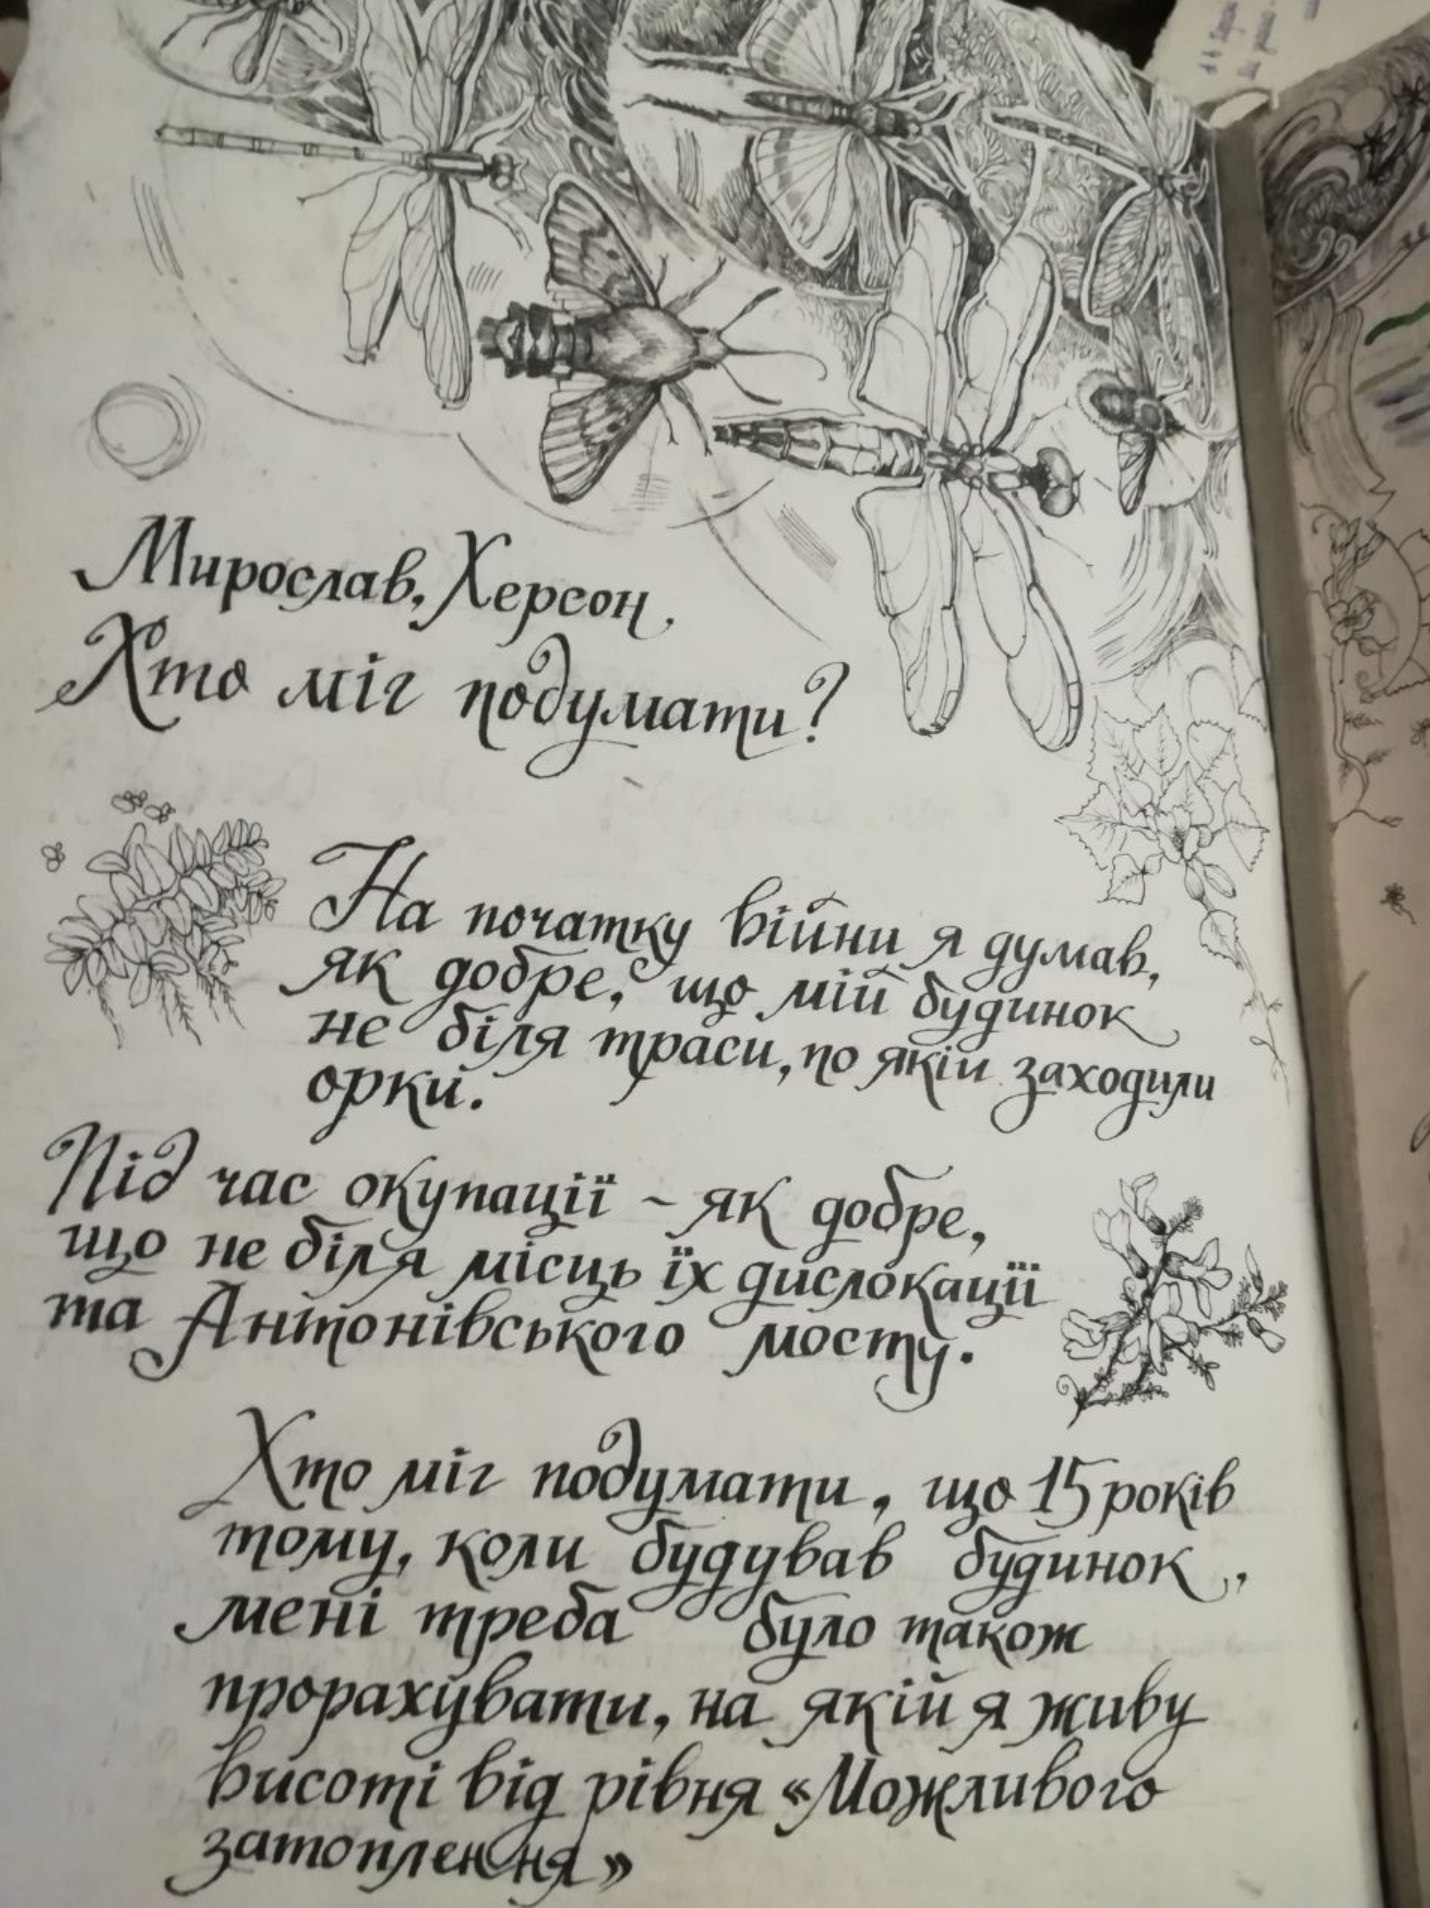 Мирослав, Херсон.
Хто міг подумати?
На початку війни я думав,
як добре, що мій будинок
не біля траси, по якій заходили
орки.
Під час окупації - як добре,
що не біля місць їх дислокації
та Антонівського мосту.
Хто міг подумати, що 15 років
тому, коли будував будинок,
мені треба було також
прорахувати, на якій я живу
висоті від рівня «Можливого
затоплення»